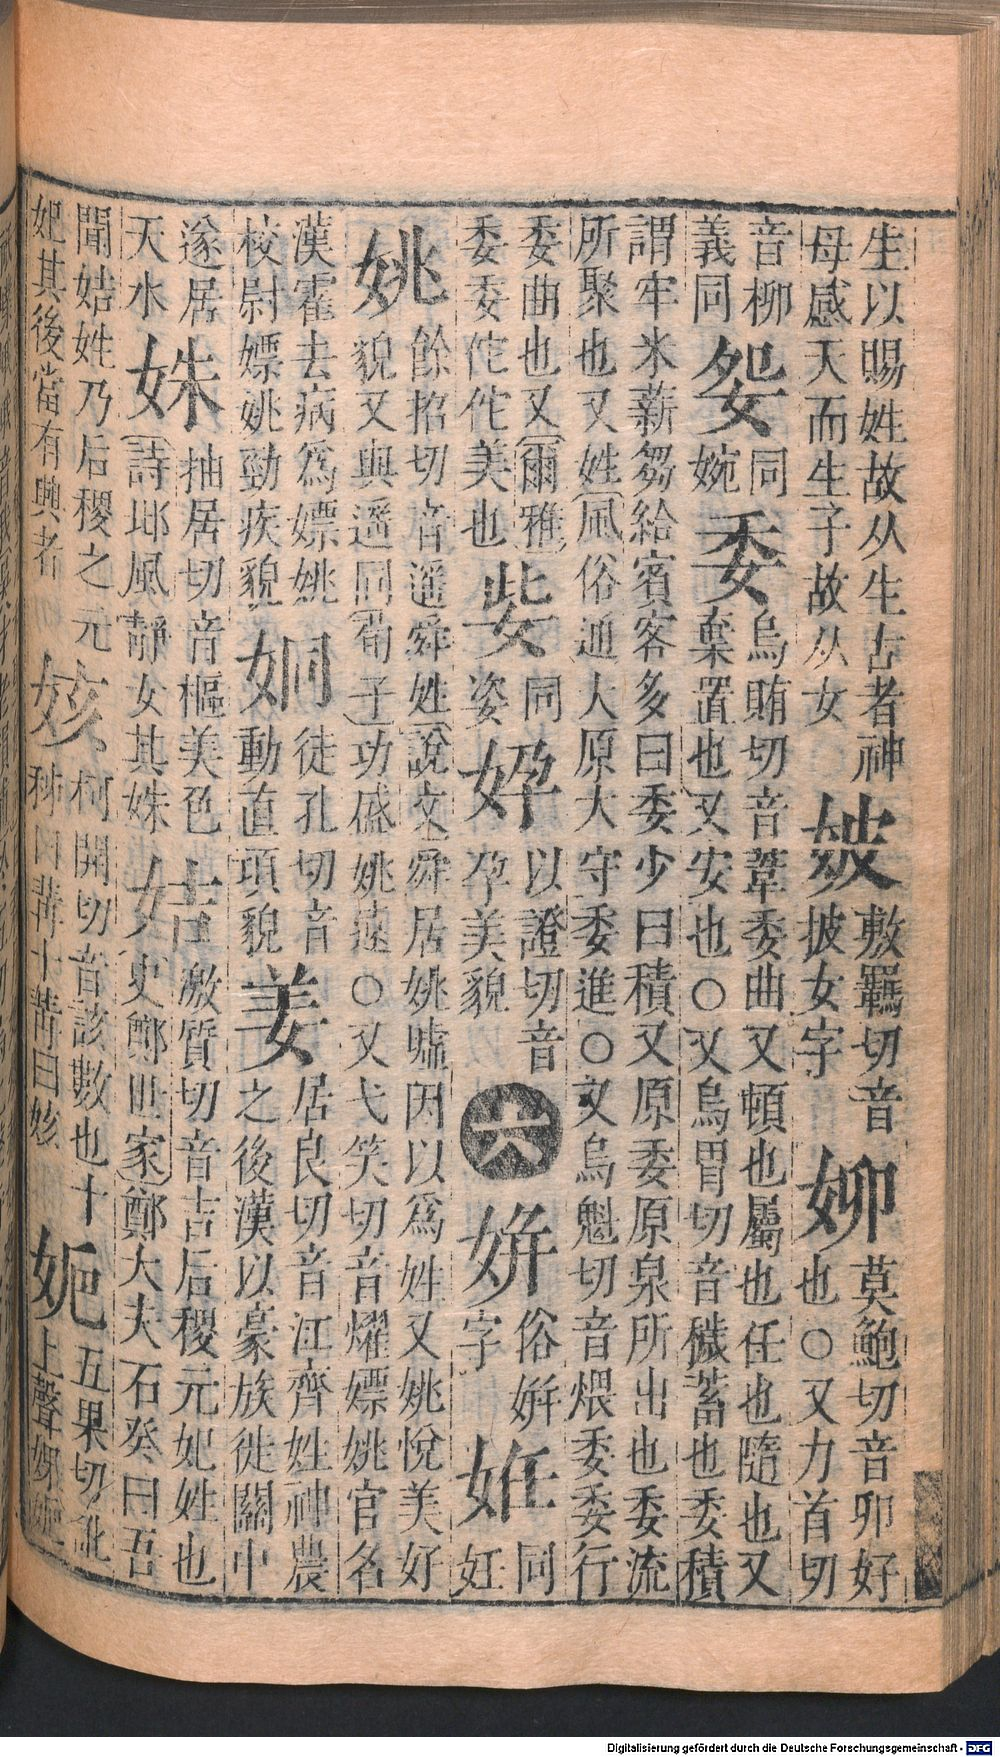 生以賜姓故从生古者神
母感天而生子故从女○
㛇
敷羈切音
披女字
㚹
莫鮑切音卯好
也○又力首切
音柳
義同
妴
同
婉
委
烏賄切音葦委曲又頓也屬也任也隨也又
棄置也又安也○又烏胃切音穢蓄也委積
謂牢米薪芻給賓客多曰委少曰積又原委原泉所出也委流
所聚也又姓風俗通大原大守委進○又烏魁切音煨委委行
委曲也又爾雅
委委佗佗美也
姕
同
姿
㛎
以證切音
孕美貌
六
姘
俗姘
字
姙
同
妊
姚
餘招切音遥舜姓說文舜居姚墟因以爲姓又姚悅美好
貌又與遥同荀子功盛姚遠○又弋笑切音燿嫖姚官名
漢霍去病爲嫖姚
校尉嫖姚勁疾貌
姛
徒孔切音
動直項貌
姜
居良切音江齊姓神農
之後漢以豪族徙關中
遂居
天水
姝
抽居切音樞美色
詩邶風靜女其姝
姞
激質切音吉后稷元妃姓也
史鄭世家鄭大夫石癸曰吾
聞姞姓乃后稷之元
妃其後當有興者
姟
柯開切音該數也十
秭曰冓十冓曰姟
妮
五果切
上聲
Digitalisierung gefördert durch die Deutsche Forschungsgemeinschaft - DFG